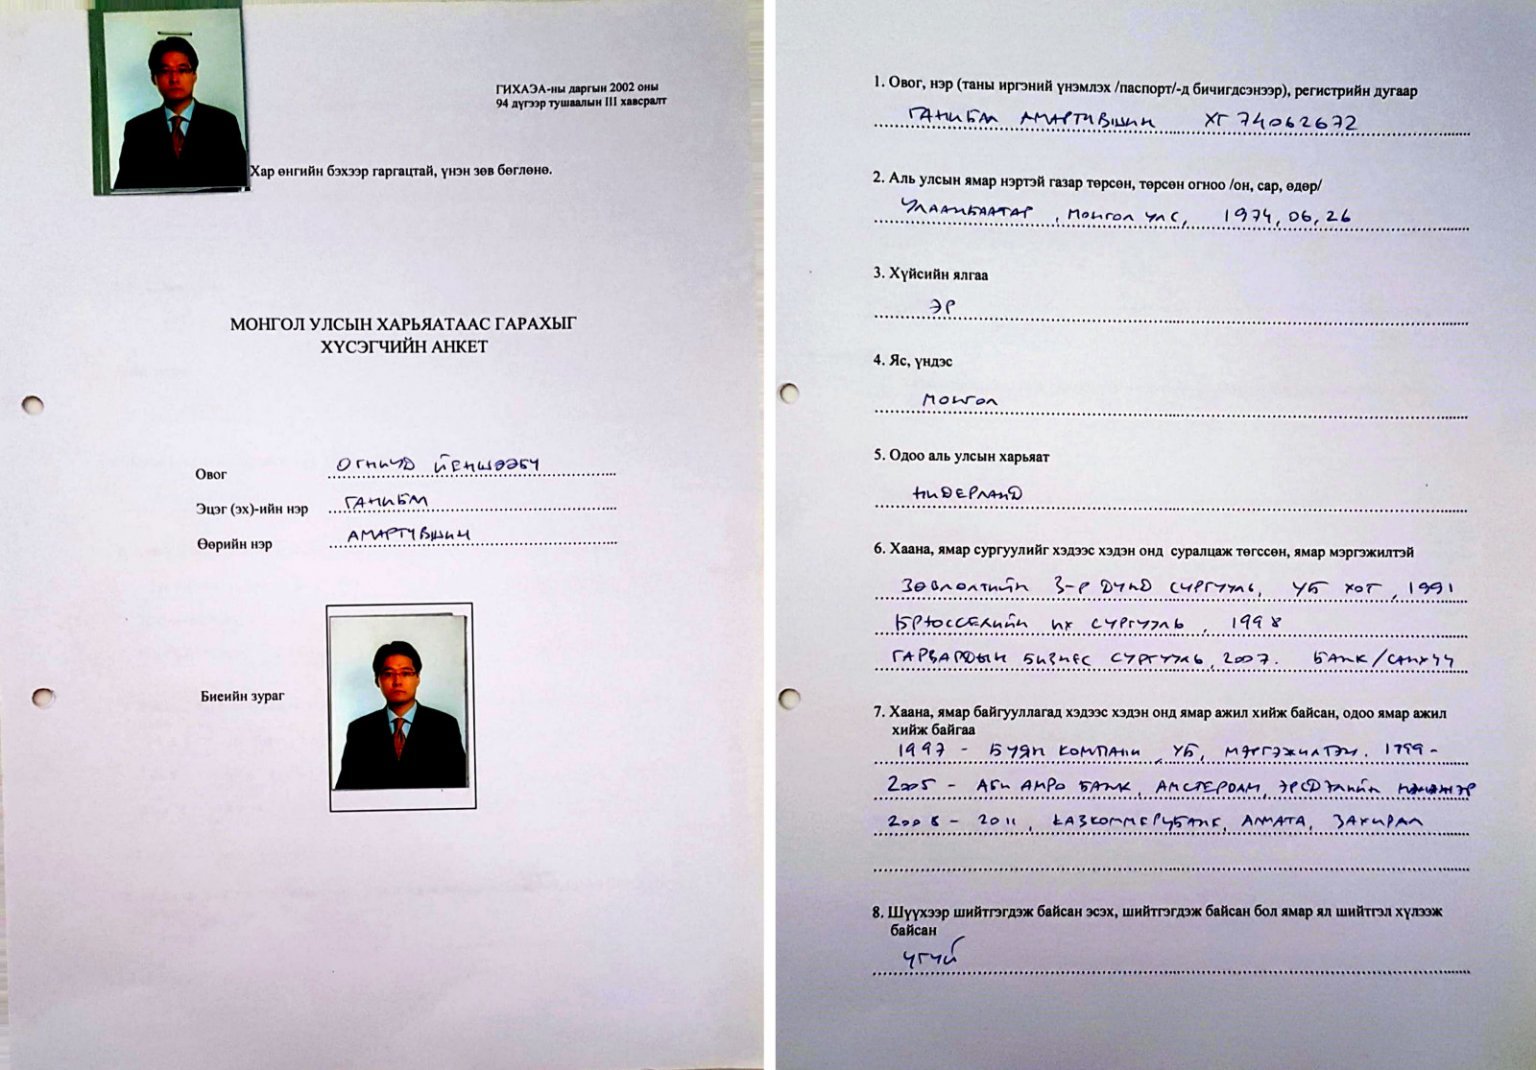 ГИХАЭА-ны даргын 2002 оны
94 дүгээр тушаалын III хавсралт
Хар өнгийн бэхээр гаргацтай, үнэн зөв бөглөнө.
МОНГОЛ УЛСЫН ХАРЬЯАТААС ГАРАХЫГ
ХҮСЭГЧИЙН АНКЕТ
Овог ОГНИУД ЙЕНШӨӨБҮ
Эцэг (эх)-ийн нэр ГАНИБАЛ
Өөрийн нэр АМАРТҮВШИН
Биеийн зураг
1. Овог, нэр (таны иргэний үнэмлэх /паспорт/-д бичигдсэнээр), регистрийн дугаар
ГАНИБАЛ АМАРТҮВШИН ХГ 74062672
2. Аль улсын ямар нэртэй газар төрсөн, төрсөн огноо /он, сар, өдөр/
УЛААНБААТАР, МОНГОЛ УЛС, 1974, 06, 26
3. Хүйсийн ялгаа
ЭР
4. Яс, үндэс
МОНГОЛ
5. Одоо аль улсын харьяат
НИДЕРЛАНД
6. Хаана, ямар сургуулийг хэдээс хэдэн онд суралцаж төгссөн, ямар мэргэжилтэй
ЗӨВЛӨЛТИЙН 3-Р ДУНД СУРГУУЛЬ, УБ ХОТ, 1991
БРЮССЕЛИЙН ИХ СУРГУУЛЬ, 1998
ГАРВАРДЫН БИЗНЕС СУРГУУЛЬ, 2007. БАНК/САНХҮҮ
7. Хаана, ямар байгууллагад хэдээс хэдэн онд ямар ажил хийж байсан, одоо ямар ажил
хийж байгаа
1997 - БУЯН КОМПАНИ, УБ, МЭРГЭЖИЛТЭН. 1999-
2005 - АБН АМРО БАНК, АМСТЕРДАМ, ЭРСДЭЛИЙН МЕНЕЖЕР
2008 - 2011, КАЗКОММЕРЦБАНК, АЛМАТА, ЗАХИРАЛ
8. Шүүхээр шийтгэгдэж байсан эсэх, шийтгэгдэж байсан бол ямар ял шийтгэл хүлээж
байсан
ҮГҮЙ